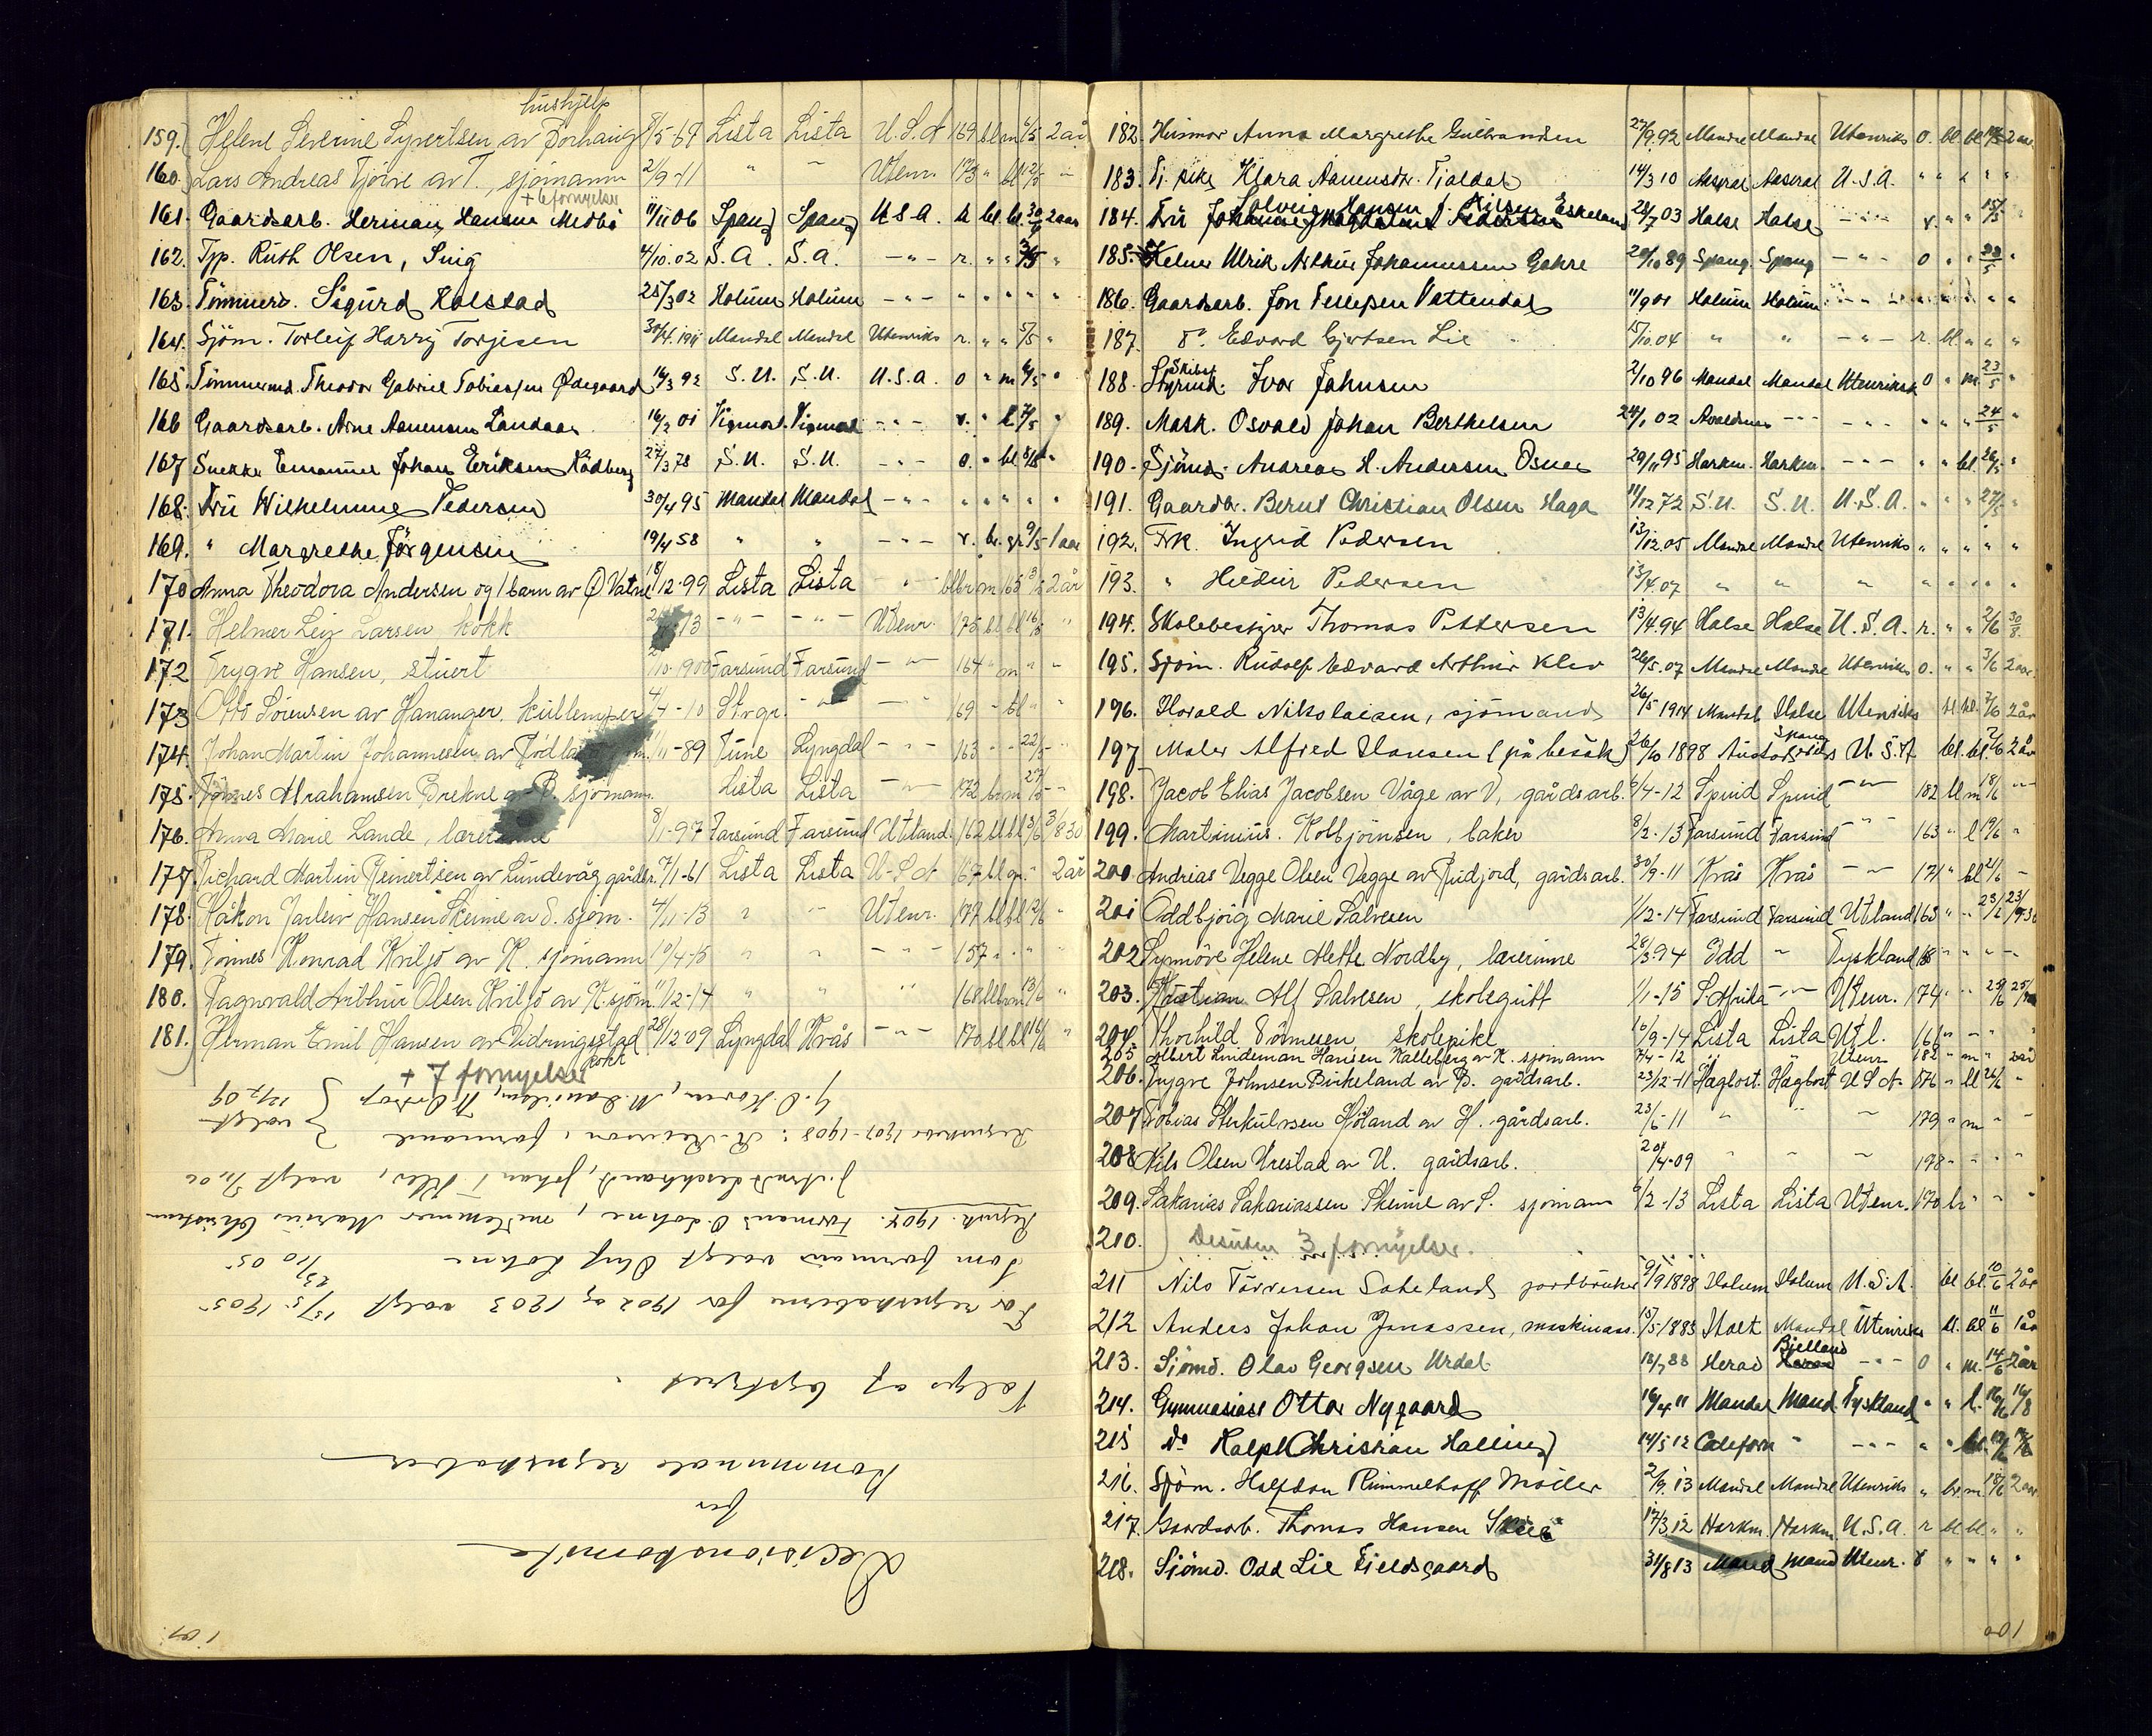 hushjelp
159. Helene Severine Syvertsen av Torhaug 8/5-69 Lista Lista U.S.A 169 bl m 6/5 2 år
160. Lars Andreas Tjörve av T., sjömann 2/9-11 " - Utenr. 173 " bl 12/5 -
+ 6 fornyelser
161. Gaardsarb. Herman Hansen Medbö 11/11 06 Spang Spang U.S.A. bl. bl. 2 aar
162. Tjp. Ruth Olsen, Suig 4/10.02 S.A. S.A. -"- r. " " "
163. Tömmerm. Sigurd Holstad 25/3 02 Holum Holum -"- " " " " "
164. Sjöm. Torleif Harry Torjesen 30/4.1911 Mandal Mandal Utenriks r. " " 5/5 "
165. Tömmermd. Theodor Gabriel Tobiassen Ødegaard 16/3 92 S.U. S.U. U.S.A. o " m 6/5 "
166 Gaardsarb. Arne Aanensen Landaas 16/2 01 Vigmost. Vigmost -"- r. " 7/5 "
167 Snekker Emanuel Johan Eriksen Rödberg 27/3 78 S.U. S.U. -"- o. " bl 8/5 "
168. Fru Wilhelmine Pedersen 30/4 95 Mandal Mandal -"- " " " " "
169. " Margrethe Jörgensen 19/4 58 " " -"- r. br. gr. 9/5 1 aar
170 Anna Theodora Andersen og 1 barn av Ø Vatne 18/12-99 Lista Lista - " - bl br m 165 2 år
171. Helmer Leiz Larsen, kokk 13 -"- -"- Utenr. 175 bl bl 16/5 "
172 Trygve Hansen, stuert /10-1900 Farsund Farsund -"- 164 " m " "
173 Otto Sörensen av Hananger, kullemper 4/4-10 Stvgr. -"- - 169 - bl " "
174. Johan Martin Johannessen av Rödland 11-89 Fune Lyngdal -"- 163 - - 22/5 - "
175. Tönnes Abrahamsen Brekne av B. sjömann. Lista Lista -"- 172 br m 27/5 - -
176. Anna Marie Lande, lærerinne 8/1-97 Farsund Farsund Utland. 162 bl bl 3/6 3/8 30
177. Richard Martin Reinertsen av Lundevåg gårdbr. 7/1-61 Lista Lista U-S A 167 bl gr. - 2 år
178. Håkon Jarleiv Hansen Skeime av S. sjöm. 4/11-13 " " Utenr. 177 bl bl 12/6 "
179. Tönnes Konrad Kviljo av K. sjömann 10/4-15 " " -"- 157 " " " "
180. Ragnvald Arthur Olsen Kviljo av K. sjöm. 11/12-14 " " " 168 bl br m 13/6 "
181. Herman Emil Hansen av Vidringsstad 28/12-09 Lyngdal Kvås -"- 170 bl bl 16/6 "
kokk
+ 7 fornyelser
Decisionskomite
for
kommunale regnskaber
Valgte af bystyret.
For regnskaberne for 1902 og 1903 valgt 15/5 1905
Som formand valgt Oluf Lohne 23/10 05
Regnsk. 1904. Formand O. Lohne, medlemmer Marius Christensen
J. Arndt Leschbrandt, Johan T. Klev, valgt 7/11 06
Regnskab 1907-1908: R. Reierson, formand
valgt 12/2 09
101
182. Husmor Anna Margrethe Gulbrandsen 27/9.92 Mandal Mandal Utenriks o. bl. bl. 2 aar
183. Tj. pike Klara Aanensdtr. Fjaldal 14/3 10 Aaseral Aaseral U.S.A. " " " " "
Solveig Hansen f. Nilsen Eskeland
184. Fru 28/7 03 Halse Halse -"- r. " " 15/5 "
185. Helmer Ulrik Arthur Johannessen Gahre 20/10 89 Spang. Spang -"- o " " 20/5 "
186. Gaardsarb. Jon Tellefsen Vattendal 11/9 01 Holum Holum -"- " " "
187. Do. Edvard Gjertsen Lie 15/10.04 " " -"- r. bl. " " "
Skibs
188. Styrmd. Ivar Johnsen 2/10 96 Mandal Mandal Utenriks o " m. 23/5 "
189. Mask. Osvald Johan Berthelsen 24/1 02 Avaldsnes -"- -"- " " " 24/5 "
190. Sjömd. Andreas H. Andersen Osnes 29/11 95 Harkm. Harkm. -"- " " bl. 26/5 "
191. Gaardbr. Bernt Christian Olsen Haga 11/12 72 S.U. S.U. U.S.A. " " " 27/5 "
192. Frk. Ingrid Pedersen 13/12.05 Mandal Mandal Utenriks " " " " "
193. " Hildur Pedersen 13/4.07 " " " " " " " "
194. Skolebestyrer Thomas Pettersen 13/4.94 Halse Halse U.S.A. r. " " 2/6 30/8
195. Sjöm. Rudolf Edvard Arthur Klev 26/5.07 Mandal Mandal Utenriks o. " " 3/6 2 aar
196. Harald Nikolaisen, sjömand 26/5 1914 Mandal Halse Utenriks bl. bl. 7/6 2 år
Spang
197 Maler Alfred Hansen (på besök) 26/10 1898 U.S.A bl. bl. 7/6 2 år
198. Jacob Elias Jacobsen Våge av V, gårdsarb. 6/4-12 Spind Spind -"- 182 bl m 18/6 -"-
199. Martinius Kolbjörnsen, baker 8/2-13 Farsund Farsund -"- 163 " bl 19/6 "
200. Andrias Vegge Olsen Vegge av Rudjord, gårdsarb. 30/9-11 Kvås Kvås -"- 171 " bl 21/6 -
201 Oddbjörg Marie Salvesen 1/12-14 Farsund Farsund Utland 163 " " 23/6 23/9 30
202 Synnöve Helene Alette Nordby, lærerinne 28/3 94 Idd " Tyskland 168 " " " "
203. Kristian Alf Salvesen, skolegutt 1/1-15 S. Afrika -"- Utenr. 174 " " 25/6
204. Thorhild Tönnesen skolepike 16/9-14 Lista Lista Utl. 166 " - " "
205 Albert Lindeman Hansen Kalleberg av K. sjömann 7/4-12 " " Utenr. 182 " m " 2 år
206. Trygve Johnsen Birkeland av B. gårdsarb. 23/12-11 Hægbost. Hægbost U S A. 176 " bl 26/6 "
207 Tobias Sterkulvsen Höland av H. gårdsarb. 23/6-11 " " " 179 " m " "
208 Nils Olsen Urestad av U. gårdsarb. 20/4-09 " " " 178 " " " "
209. Sakarias Sakariassen Skeime av S. sjömann 6/2-13 Lista Lista Utenr. 170 br " " "
210. Desuten 3 fornyelser.
211 Nils Tarversen Saheland jordbruker 9/9 1898 Holum Holum U.S.A. bl bl. 10/6 2 år
212 Anders Johan Jonassen, maskinass. 15/5 1885 Holt Mandal Utenriks bl. bl 11/6 1 år
Bjelland
213. Sjömd. Olav Georgsen Urdal 18/7 88 Herad Herad -"- o " m. 14/6 2 år
214. Gymnasiast Ottar Nygaard 16/4 11 Mandal Mand. Tyskland " " 16/6 16/8
215 Do Ralph Christian Halling 14/5 12 Californ " -"- " "
216. Sjöm. Halfdan Rummelhoff Möller 2/9.13 Mandal Mandal Utenriks " br. m 18/6 2 aar
217. Gaardsarb. Thomas Hansen 17/3 12 Harkm. Harkm. U.S.A. r bl bl. " "
218. Sjömd. Odd Lie Fjeldsgaard 31/8 13 Mand Mand Utenr. r " " " "